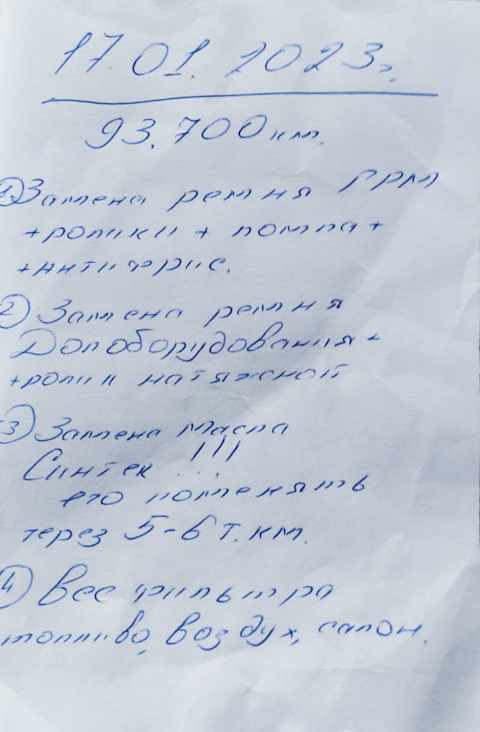 17.01.2023г.
93.700км.
① Замена ремня ГРМ
+ролики + помпа +
+антифриз.
② Замена ремня
Допоборудования +
+ролик натяжной
③ Замена масла
Синтек !!!
его поменять
через 5-6 т.км.
④ Все фильтра
топливо, воздух, салон.